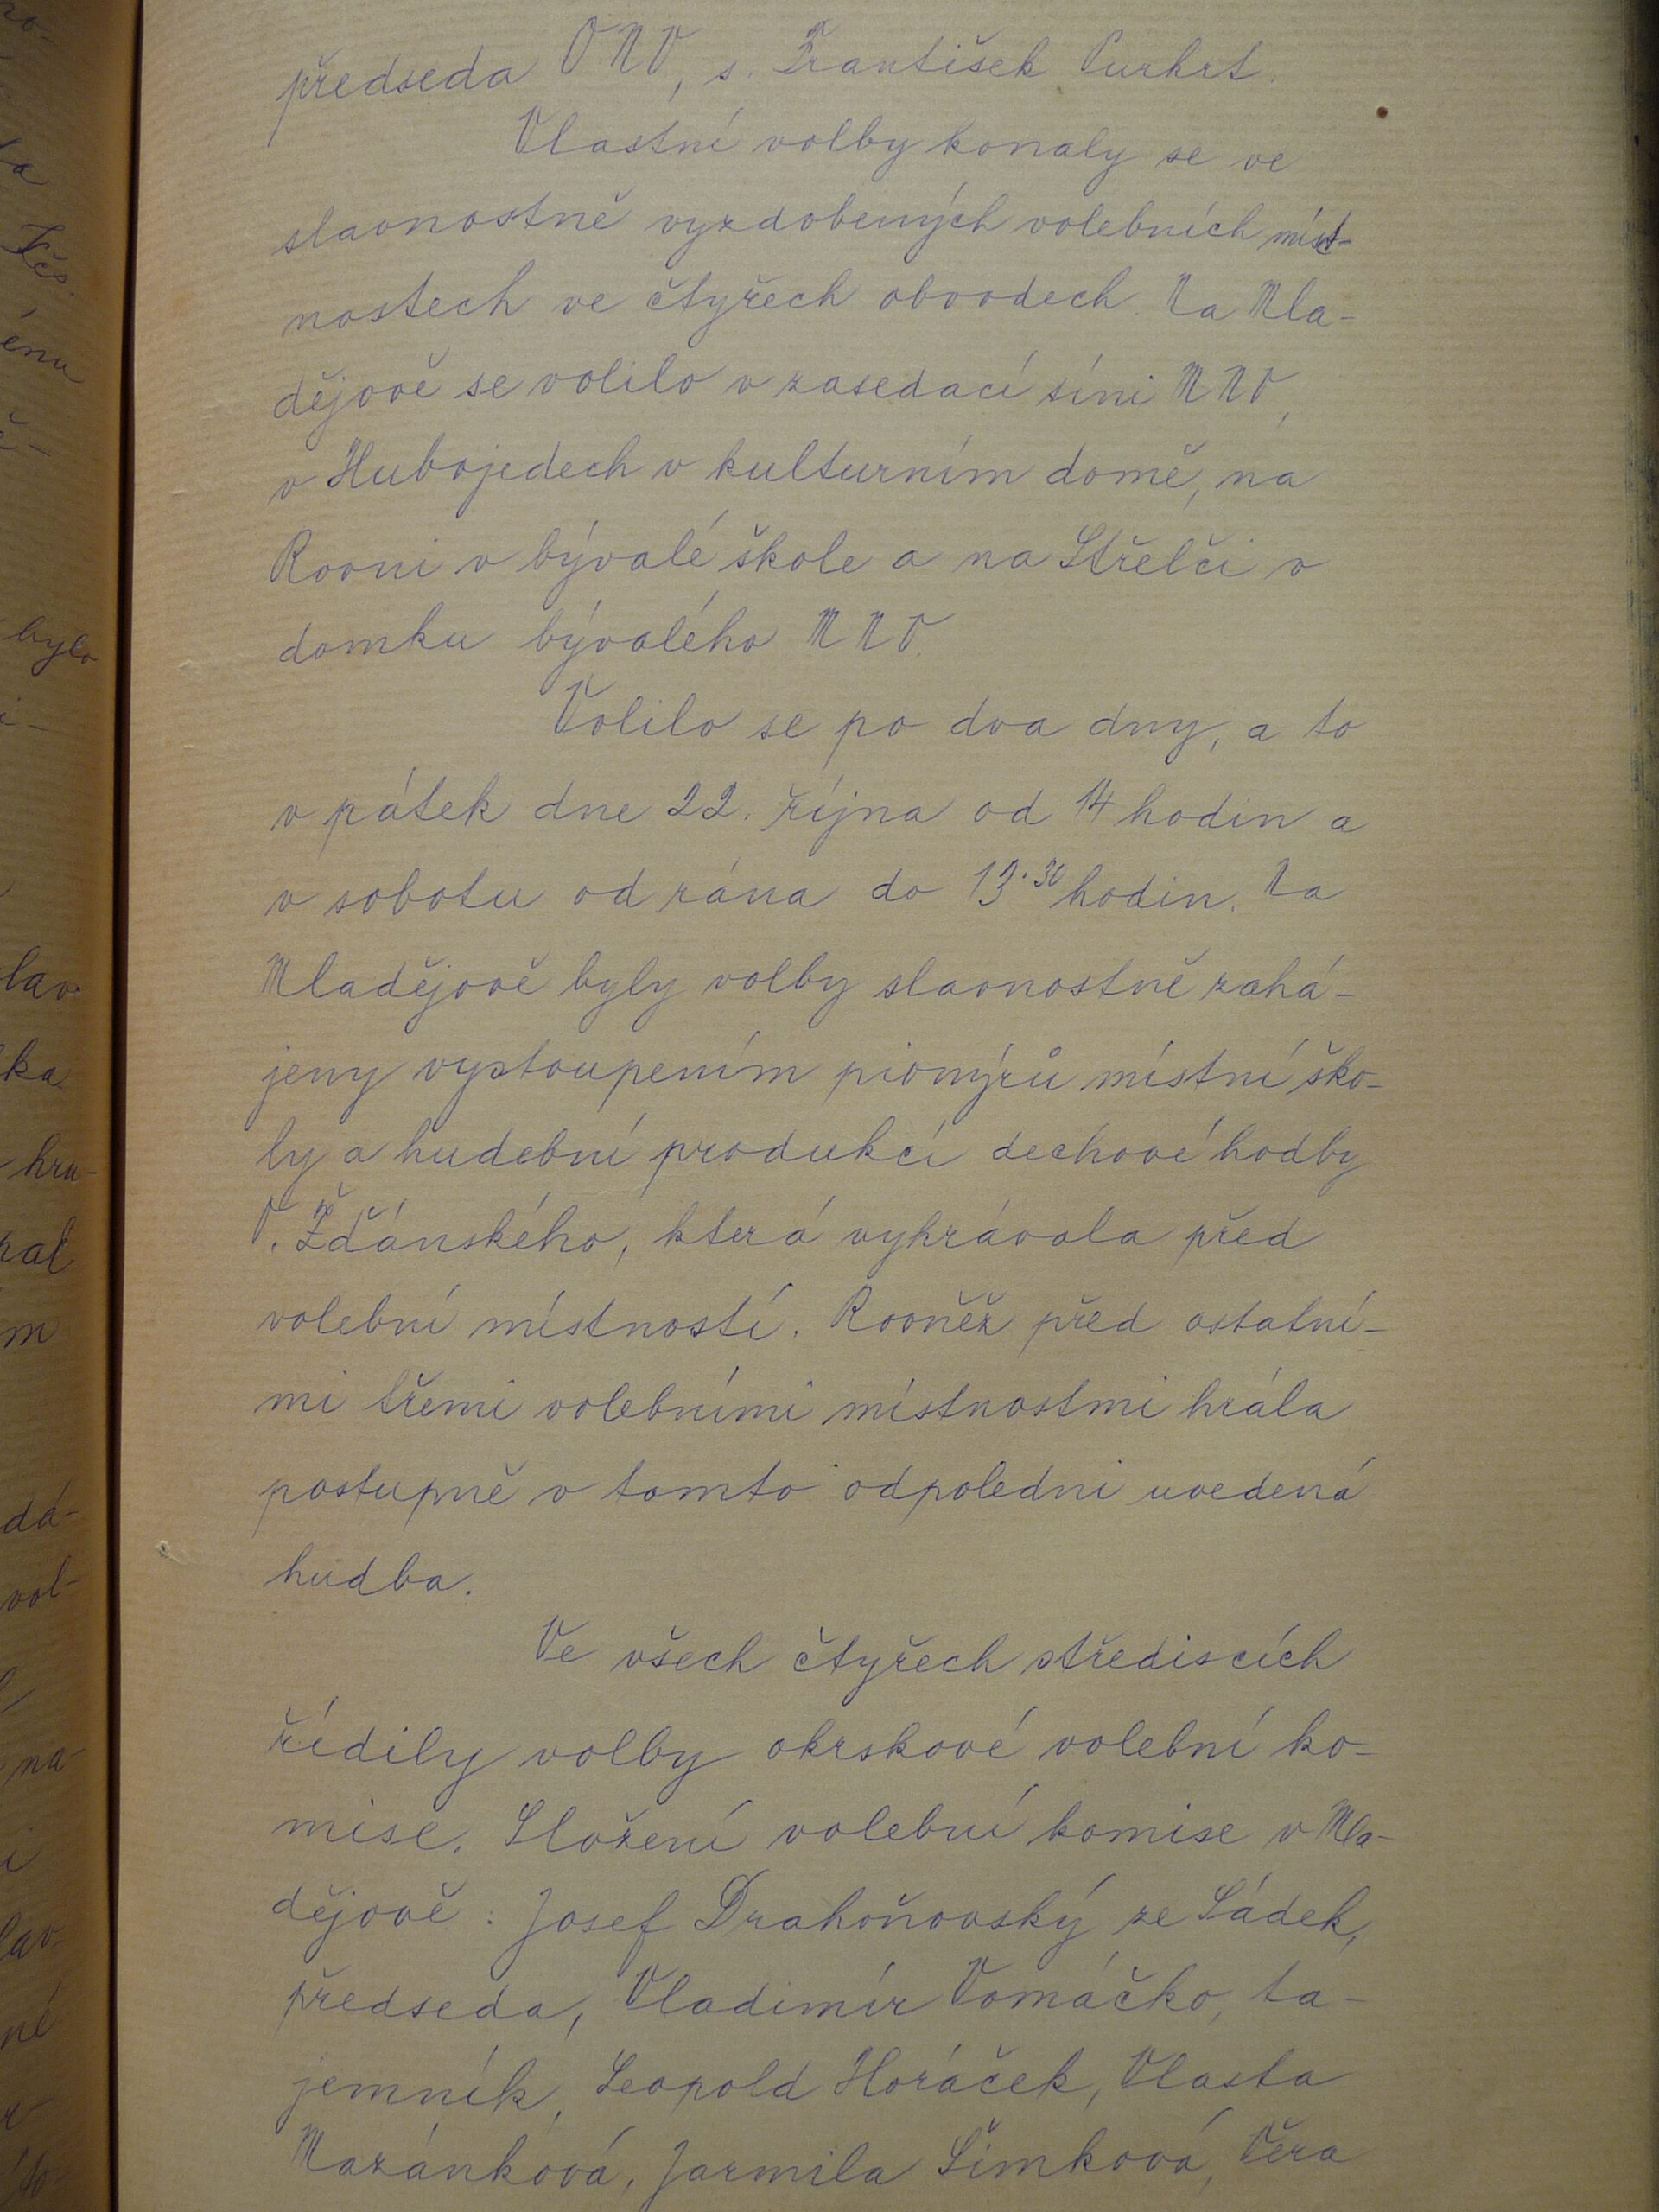 předseda ONV, s. František Purkrt.
Vlastní volby konaly se ve
slavnostně vyzdobených volebních míst-
nostech ve čtyřech obvodech. Na Mla-
dějově se volilo v zasedací síni MNV,
v Hubojedech v kulturním domě, na
Rovni v bývalé škole a na Střelči v
domku bývalého MNV.
Volilo se po dva dny, a to
v pátek dne 22. října od 14 hodin a
v sobotu od rána do 13.30 hodin. Na
Mladějově byly volby slavnostně zahá-
jeny vystoupením pionýrů místní ško-
ly a hudební produkcí dechové hodby
V. Žďánského, která vyhrávala před
volební místností. Rovněž před ostatní-
mi třemi volebními místnostmi hrála
postupně v tomto odpoledni uvedená
hudba.
Ve všech čtyřech střediscích
řídily volby okrskové volební ko-
mise. Složení volební komise v Mla-
dějově: Josef Drahoňovský ze Sádek,
předseda, Vladimír Vomáčko, ta-
jemník, Leopold Horáček, Vlasta
Mazánková, Jarmila Šimková, Věra